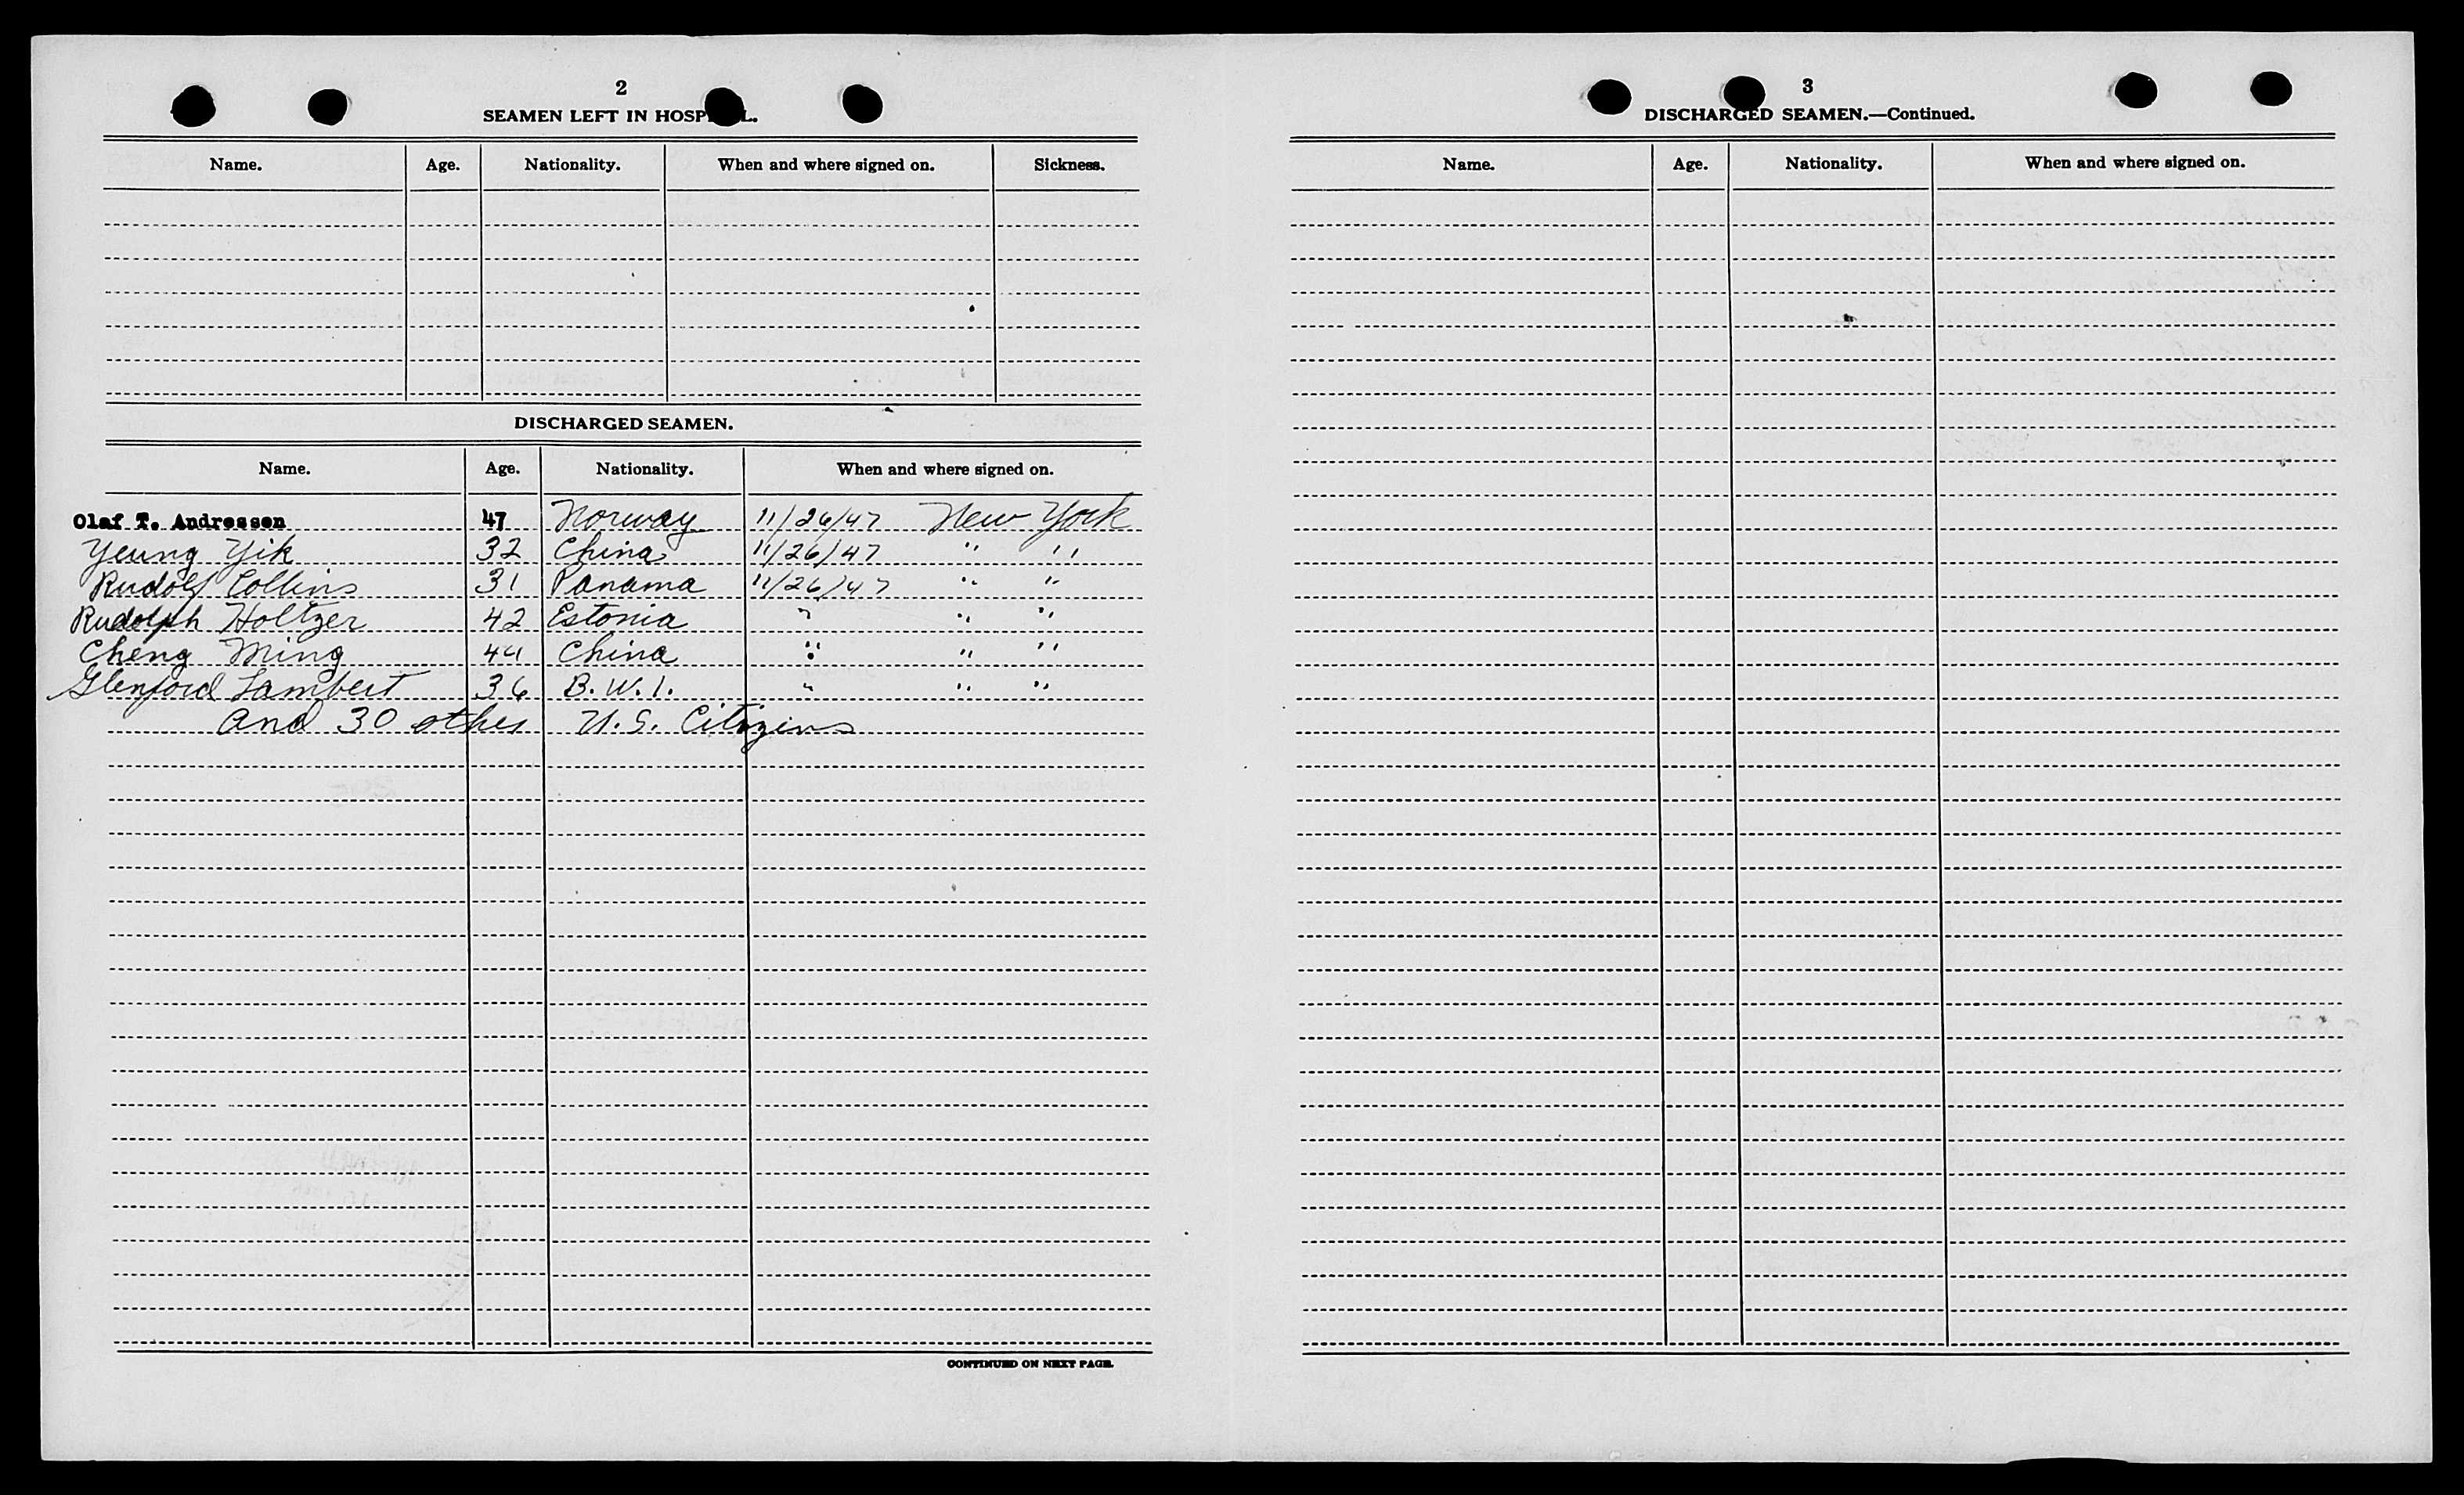 2
SEAMEN LEFT IN HOSP L.
Name. Age. Nationality. When and where signed on. Sickness.
DISCHARGED SEAMEN.
Name. Age. Nationality. When and where signed on.
Olaf T. Andressen 47 Norway 11/26/47 New York
Yeung Yik 32 China 11/26/47 " "
Rudolf Collins 31 Panama 11/26/47 " "
Rudolph Holtzer 42 Estonia " " "
Cheng Ming 44 China " " "
Glenford Lambert 36 B.W.I. " " "
and 30 other U.S. Citizens
CONTINUED ON NEXT PAGE.
3
DISCHARGED SEAMEN.—Continued.
Name. Age. Nationality. When and where signed on.